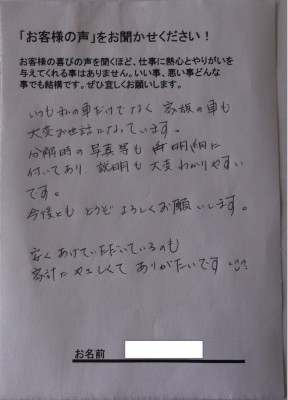 「お客様の声」をお聞かせください！
お客様の喜びの声を聞くほど、仕事に熱心とやりがいを
与えてくれる事はありません。いい事、悪い事どんな
事でも結構です。ぜひ宜しくお願いします。
いつも私の車だけでなく 家族の車も
大変お世話になっています。
分解時の写真等も 明細に
付いてあり、説明も大変わかりやすい
です。
今後とも どうぞよろしくお願いします。
安くあげていただいているのも
家計にやさしくて ありがたいです
お名前